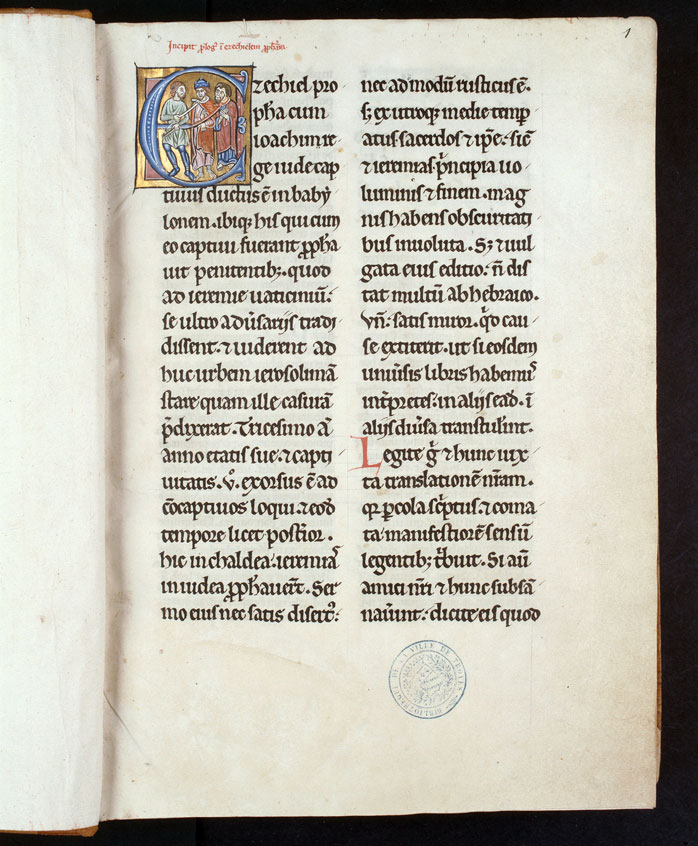 Incipit plog' ī ezechielem pphām
1
Ezechiel pro
pha cum
ioachim re
ge iude cap
tiuus ductus ē in baby
lonem. ibiq; his qui cum
eo captiui fuerant ppha
uit penitentib;. quod
ad ieremie uaticiniū.
se ultro adūsarijs tradi
dissent. ⁊ uiderent ad
huc urbem ierosolimā
stare quam ille casurā
p̄dixerat. Tricesimo aū
anno etatis sue. ⁊ capti
uitatis. v̊. exorsus ē ad
cōcaptiuos loqui. ⁊ eod̄
tempore licet post̄ior.
hic in chaldea. ieremias
in iudea pphauer̄t. Ser
mo eius nec satis disert'.
nec admodū rusticus ē.
s; ex utroq; medie temp
atus. sacerdos ⁊ ip̄e. sic̄
⁊ ieremias. p̄ncipia uo
luminis ⁊ finem. mag
nis habens obscuritati
bus inuoluta. S; ⁊ uul
gata eius editio. n̄ dis
tat multū ab hebraico.
Vn̄. satis miror. q̊d cau
se extiterit. ut si eosdem
uniūsis libris habem'
int̄pretes. in alijs ead̄. ī
alijs diūsa transtul̄int.
Legite g̊ ⁊ hunc iux
ta translationē nr̄am.
qr̄ p cola sc̄ptus. ⁊ coma
ta. manifestiorē sensū
legentib; t̄buit. Si aū
amici nr̄i ⁊ hunc subsā
nauūnt. dicite eis quod
BIBLIOTHEQUE DE LA VILLE DE TROYES